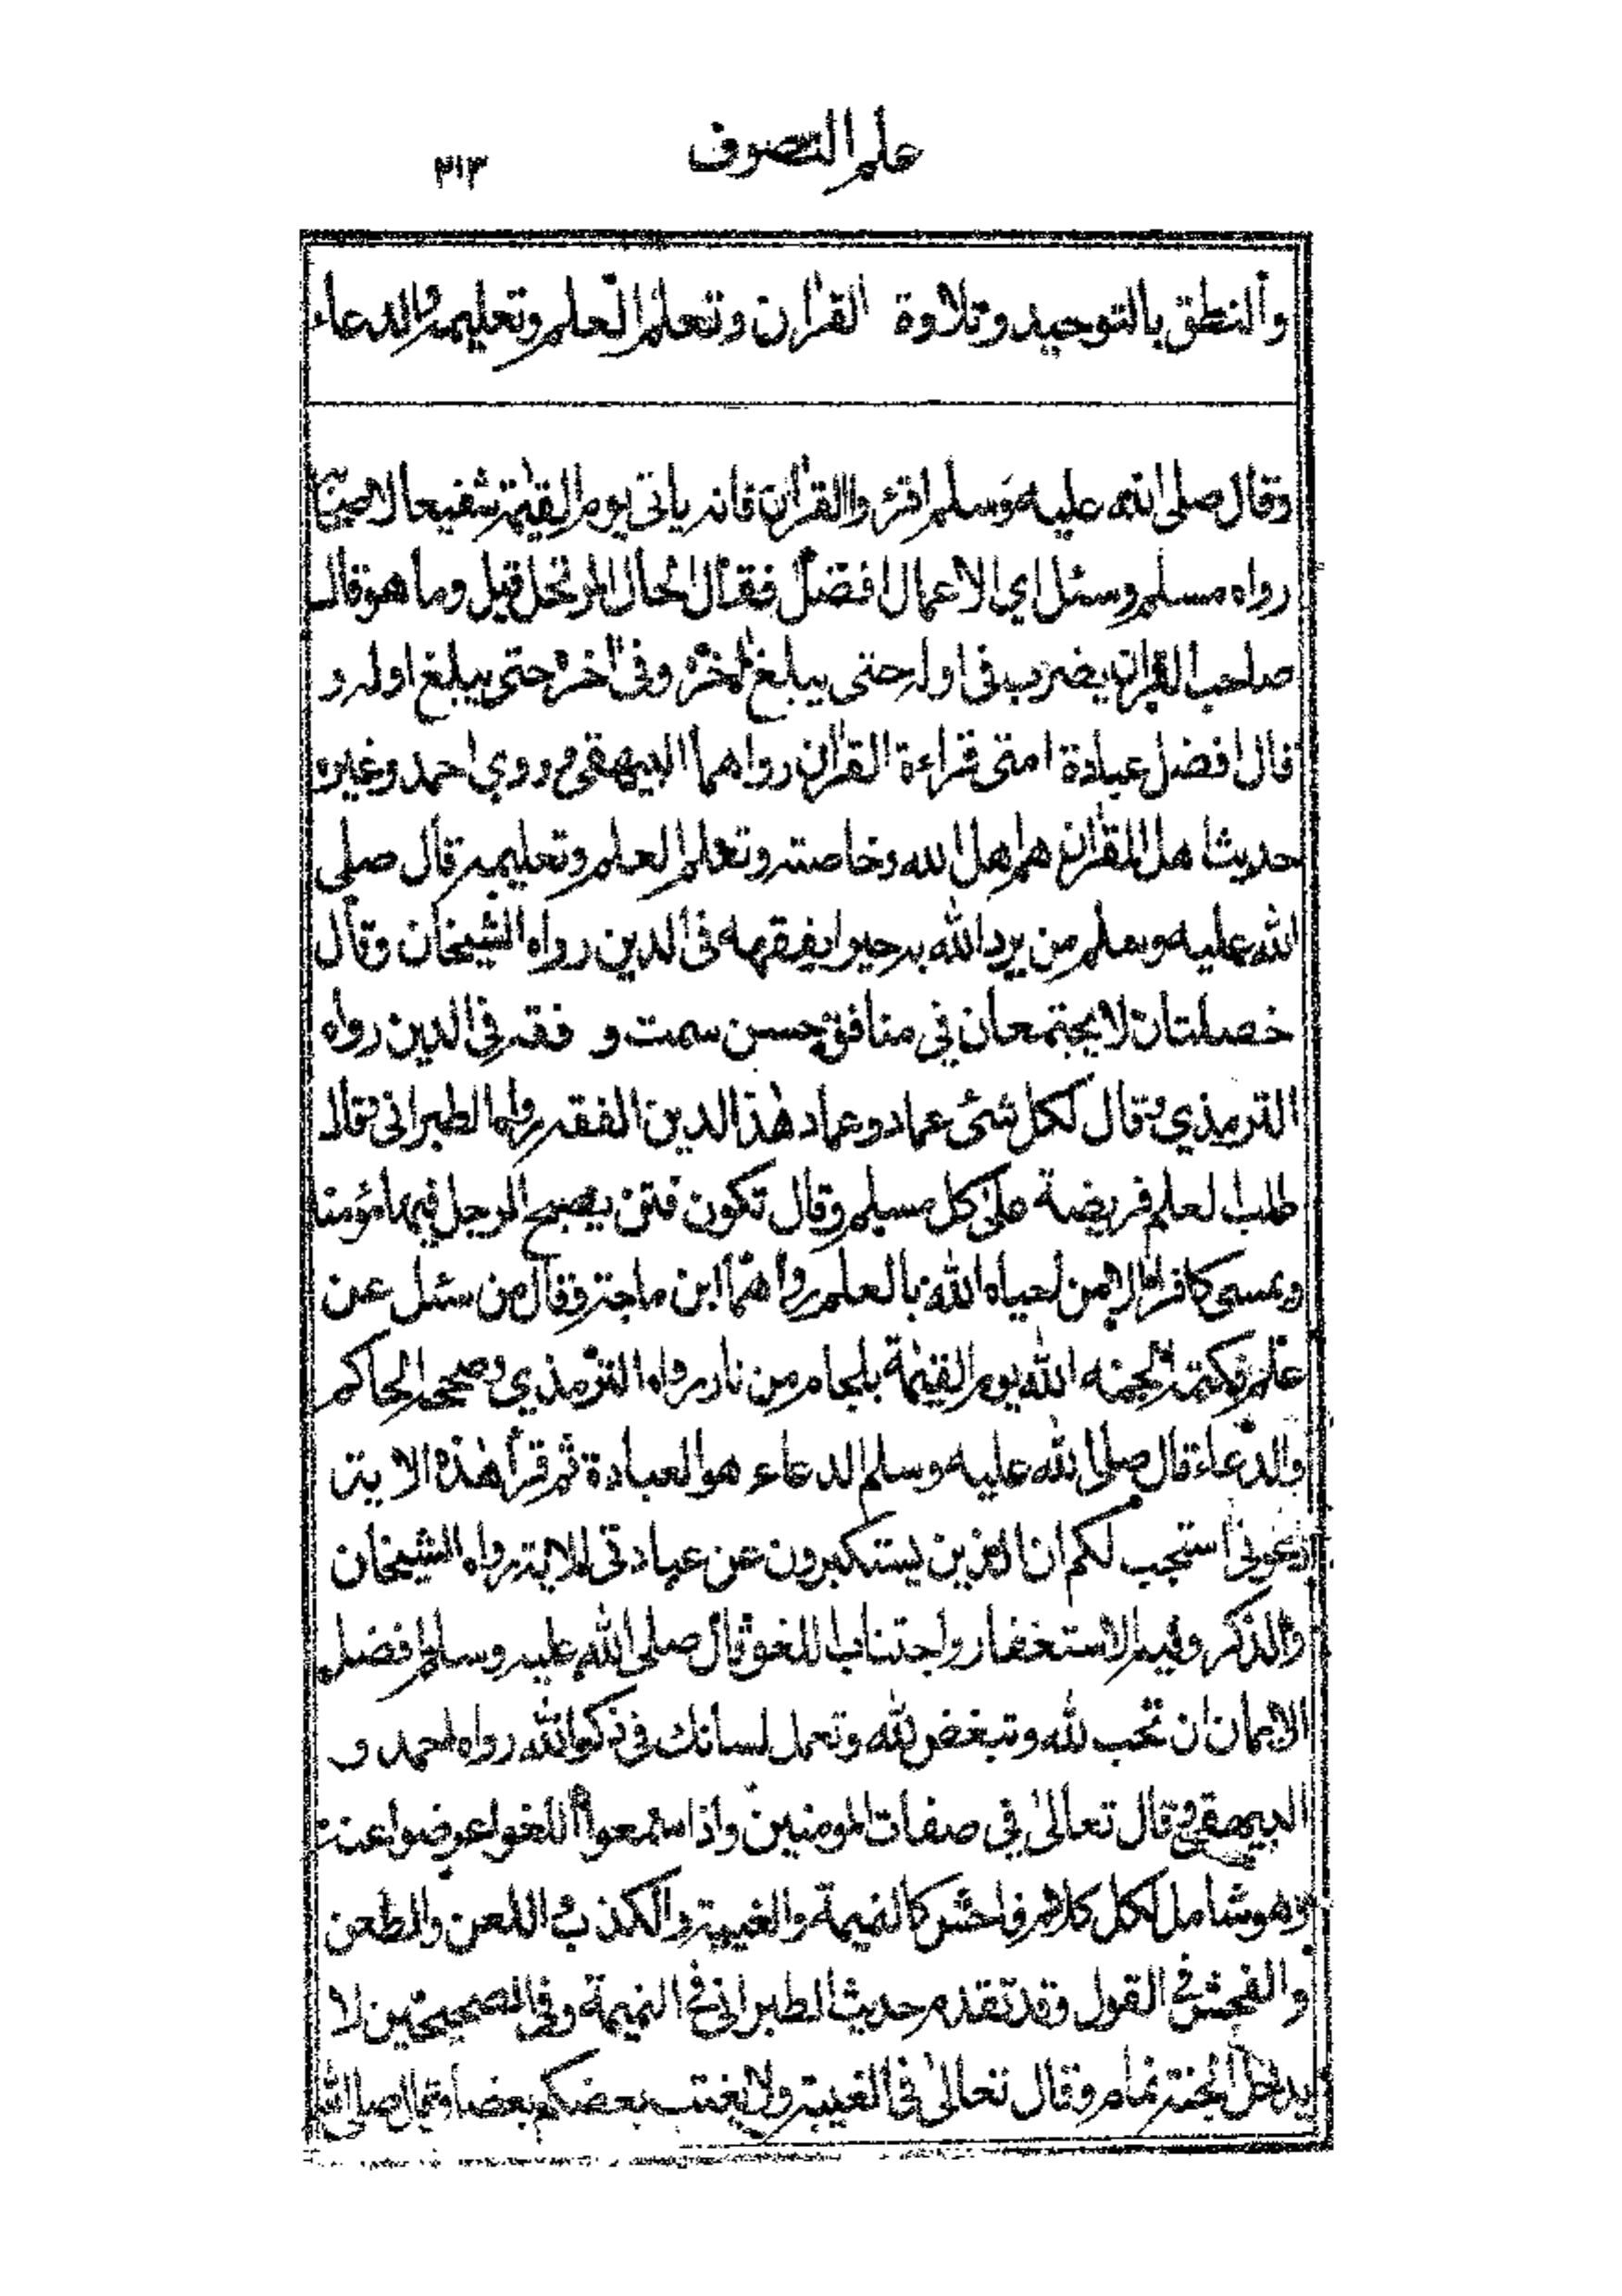 علم التصوف
٢١٣
والنطق بالتوحيد وتلاوة القرأن وتعلم العلم وتعليمه والدعاء
وقال صلى الله عليه وسلم اقرؤ والقرأن فانه ياتى يوم القيمة شفيعا لاصحابه
رواه مسلم وسئل اي الاعمال افضل فقال الحال المرتحل قيل وما هو قال
صاحب القرأن يضرب فى اوله حتى يبلغ اخره وفى اخره حتى يبلغ اوله و
قال افضل عبادة امتى قراءة القرأن رواهما البيهقى وروي احمد وغيره
حديث اهل القرأن هم اهل الله وخاصته وتعلم العلم وتعليمه قال صلى
الله عليه وسلم من يرد الله به خيرا يفقهه فى الدين رواه الشيخان وقال
خصلتان لا يجتمعان في منافق حسن سمت و فقه فى الدين رواه
الترمذي وقال لكل شئى عماد وعماد هذا الدين الفقه رواهما الطبرانى وقال
طلب العلم فريضة على كل مسلم وقال تكون فتن يصبح الرجل فيها مؤمنا
ويمسى كافرا الا من احياه الله بالعلم رواهما ابن ماجة وقال من سئل عن
علم فكتمه الجمه الله يوم القيمة بلجام من نار رواه الترمذي وصححه الحاكم
والدعاء قال صلى الله عليه وسلم الدعاء هو العبادة ثم قرأ هذه الاية
ادعونى استجب لكم ان الذين يستكبرون عن عبادتى الاية رواه الشيخان
والذكر وفيه الاستغفار واجتناب اللغو قال صلى الله عليه وسلم افضل
الايمان ان تحب لله وتبغض لله وتعمل لسانك فى ذكر الله رواه احمد و
البيهقى وقال تعالى في صفات المومنين واذا سمعوا اللغو اعرضوا عنه
وهو شامل لكل كلام فاحش كالنميمة والغيبة والكذب واللعن والطعن
والفحش فى القول وقد تقدم حديث الطبرانى فى النميمة وفى الصحيحين لا
يدخل الجنة نمام وقال تعالى فى الغيبة ولا يغتب بعضكم بعضا وقال صلى الله